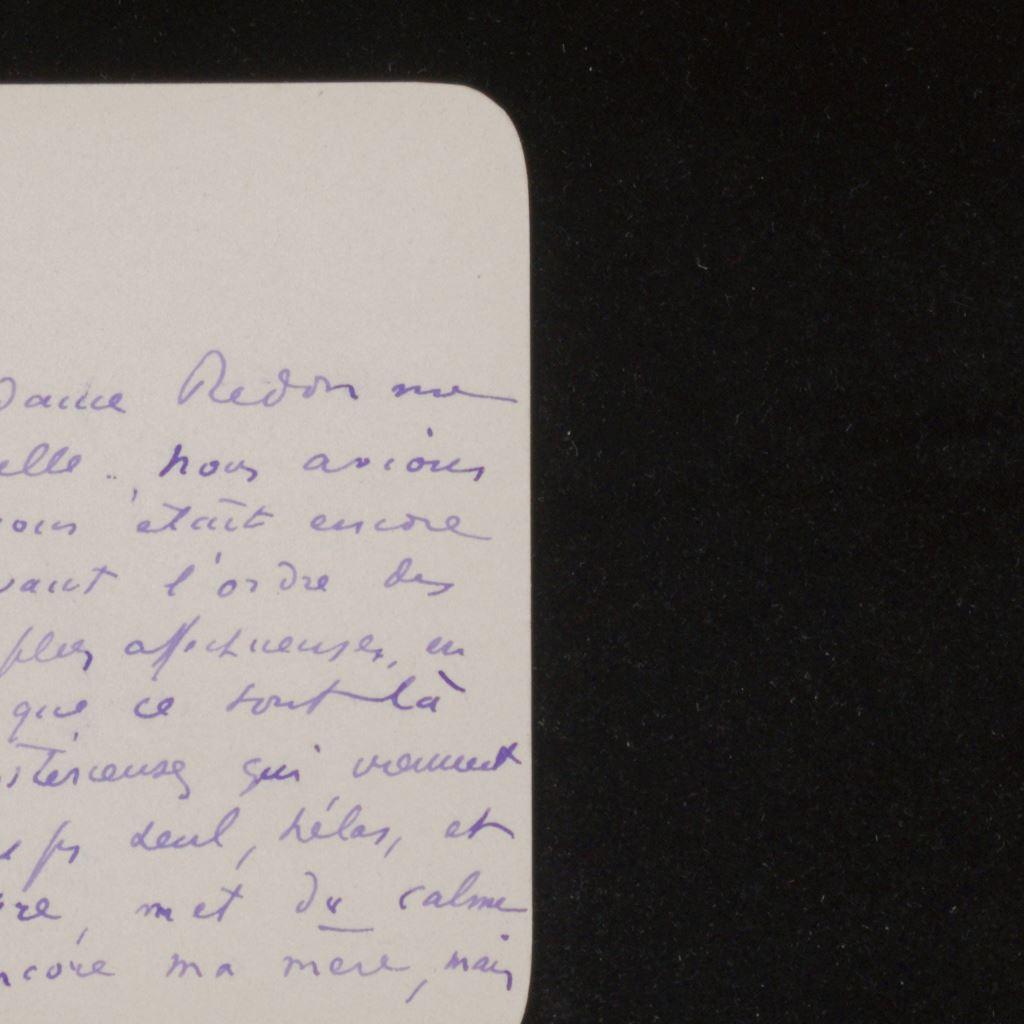 dame Redon me
elle. nous avions
vous était encore
vant l'ordre des
plus affectueuses, en
que ce sont là
stérieuses qui viennent
ps seul, hélas, et
re, met du calme
ncore ma mère, mais